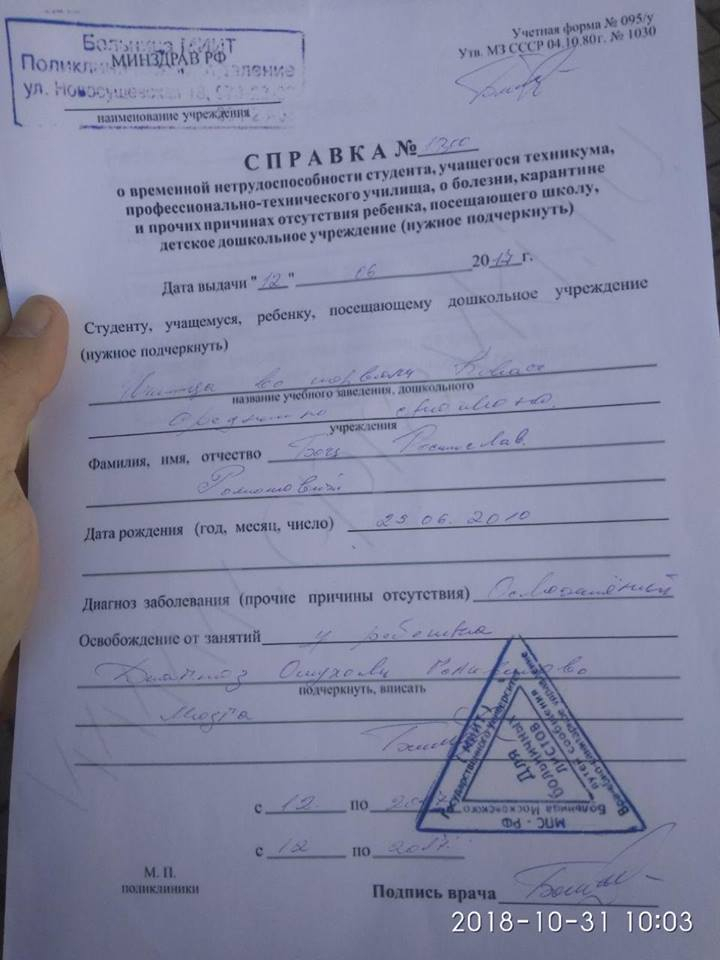 Больница МИИТ
МИНЗДРАВ РФ
ул. Новосущевская 18,
наименование учреждения
Учетная форма № 095/у
Утв. МЗ СССР 04.10.80г. № 1030
СПРАВКА №
о временной нетрудоспособности студента, учащегося техникума,
профессионально-технического училища, о болезни, карантине
и прочих причинах отсутствия ребенка, посещающего школу,
детское дошкольное учреждение (нужное подчеркнуть)
Дата выдачи "12" 06 2017г.
Студенту, учащемуся, ребенку, посещающему дошкольное учреждение
(нужное подчеркнуть)
название учебного заведения, дошкольного
учреждения
Фамилия, имя, отчество Ростислав
Дата рождения (год, месяц, число) 25 06. 2010
Диагноз заболевания (прочие причины отсутствия)
Освобождение от занятий у ребенка
Диагноз Опухоль Головного
подчеркнуть, вписать
Мозга
с 12 по 2017
с 12 по 2017.
МПС - РФ
Больница Московского
Государственного университета
путей сообщения
(МИИТ)
Врачебно-санитарное управление
Для
больничных
листов
М. П.
поликлиники
Подпись врача
2018-10-31 10:03